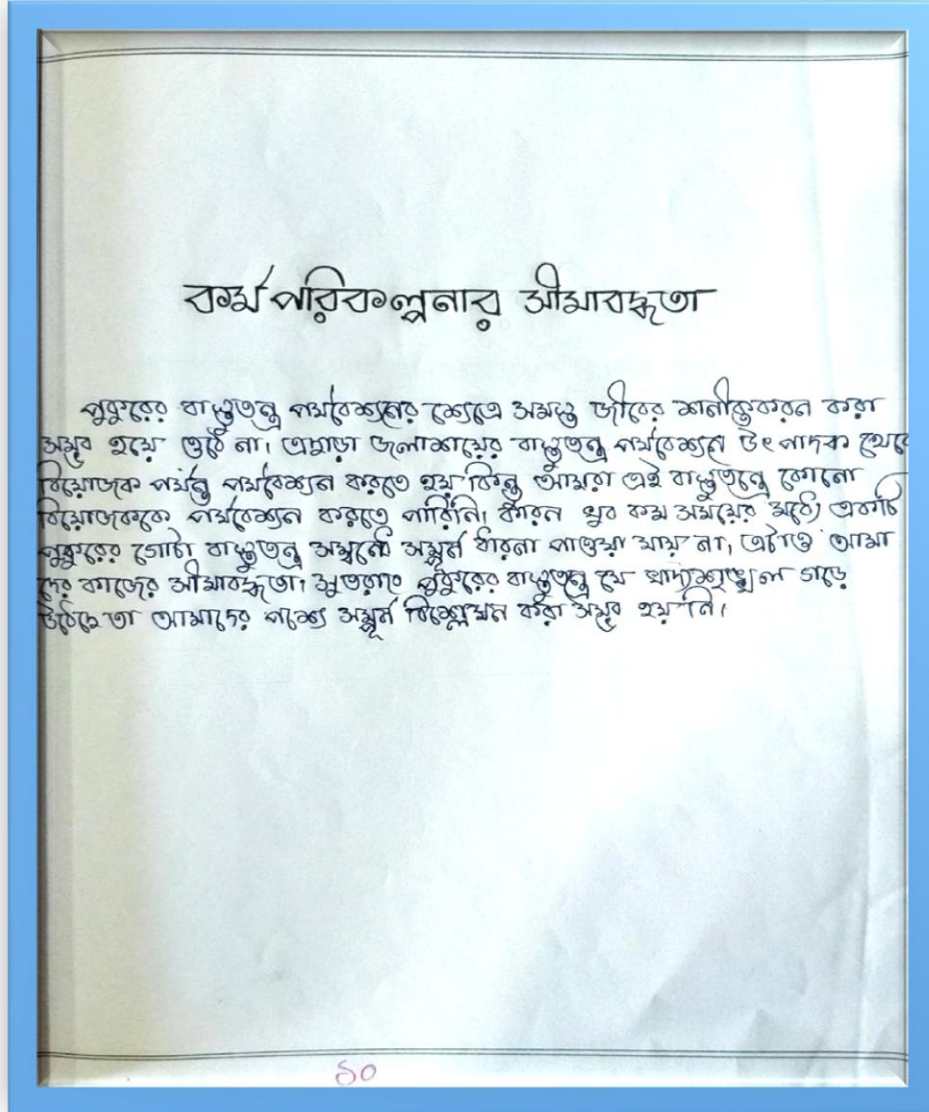 কর্মপরিকল্পনার সীমাবদ্ধতা
পুকুরের বাস্তুতন্ত্র পর্যবেক্ষনের ক্ষেত্রে সমস্ত জীবের শনাক্তকরন করা
সম্ভব হয়ে ওঠে না। এছাড়া জলাশয়ের বাস্তুতন্ত্র পর্যবেক্ষনে উৎপাদক থেকে
বিয়োজক পর্যন্ত পর্যবেক্ষন করতে হয় কিন্তু আমরা এই বাস্তুতন্ত্রে কোনো
বিয়োজককে পর্যবেক্ষন করতে পারিনি। কারন খুব কম সময়ের মধ্যে একটি
পুকুরের গোটা বাস্তুতন্ত্র সম্বন্ধে সম্পূর্ন ধারনা পাওয়া যায় না, এটাও আমা
দের কাজের সীমাবদ্ধতা। সুতরাং পুকুরের বাস্তুতন্ত্রে যে খাদ্যশৃঙ্খল গড়ে
উঠেছে তা আমাদের পক্ষে সম্পূর্ন বিশ্লেষন করা সম্ভব হয়নি।
১০